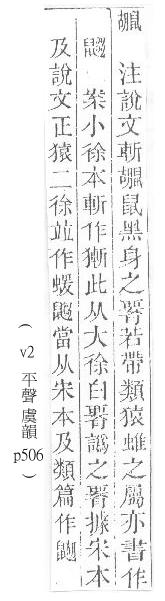 䶉　注說文斬䶉鼠黑身之若帶類猿蜼之屬亦書作
䶉　案小徐本斬作獑此从大徐白譌之據宋本
及說文正猿二徐竝作蝯䶉當从宋本及類篇作
(v2 平聲 虞韻 p506)